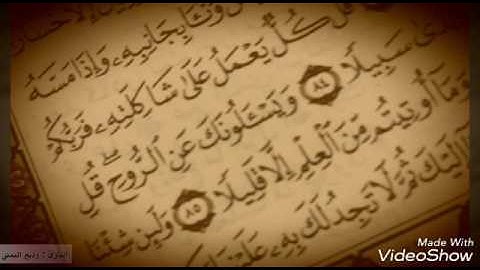 وَنَـَٔا بِجَانِبِهِۦ وَإِذَا مَسَّهُ
قُلْ كُلٌّ يَعْمَلُ عَلَىٰ شَاكِلَتِهِۦ فَرَبُّكُمْ
سَبِيلًا ٨٤ وَيَسْـَٔلُونَكَ عَنِ ٱلرُّوحِ ۖ قُلِ
وَمَآ أُوتِيتُم مِّنَ ٱلْعِلْمِ إِلَّا قَلِيلًا ٨٥ وَلَئِن شِئْنَا
إِلَيْكَ ثُمَّ لَا تَجِدُ لَكَ بِهِۦ
القارئ : وديع اليمني
Made With
VideoShow